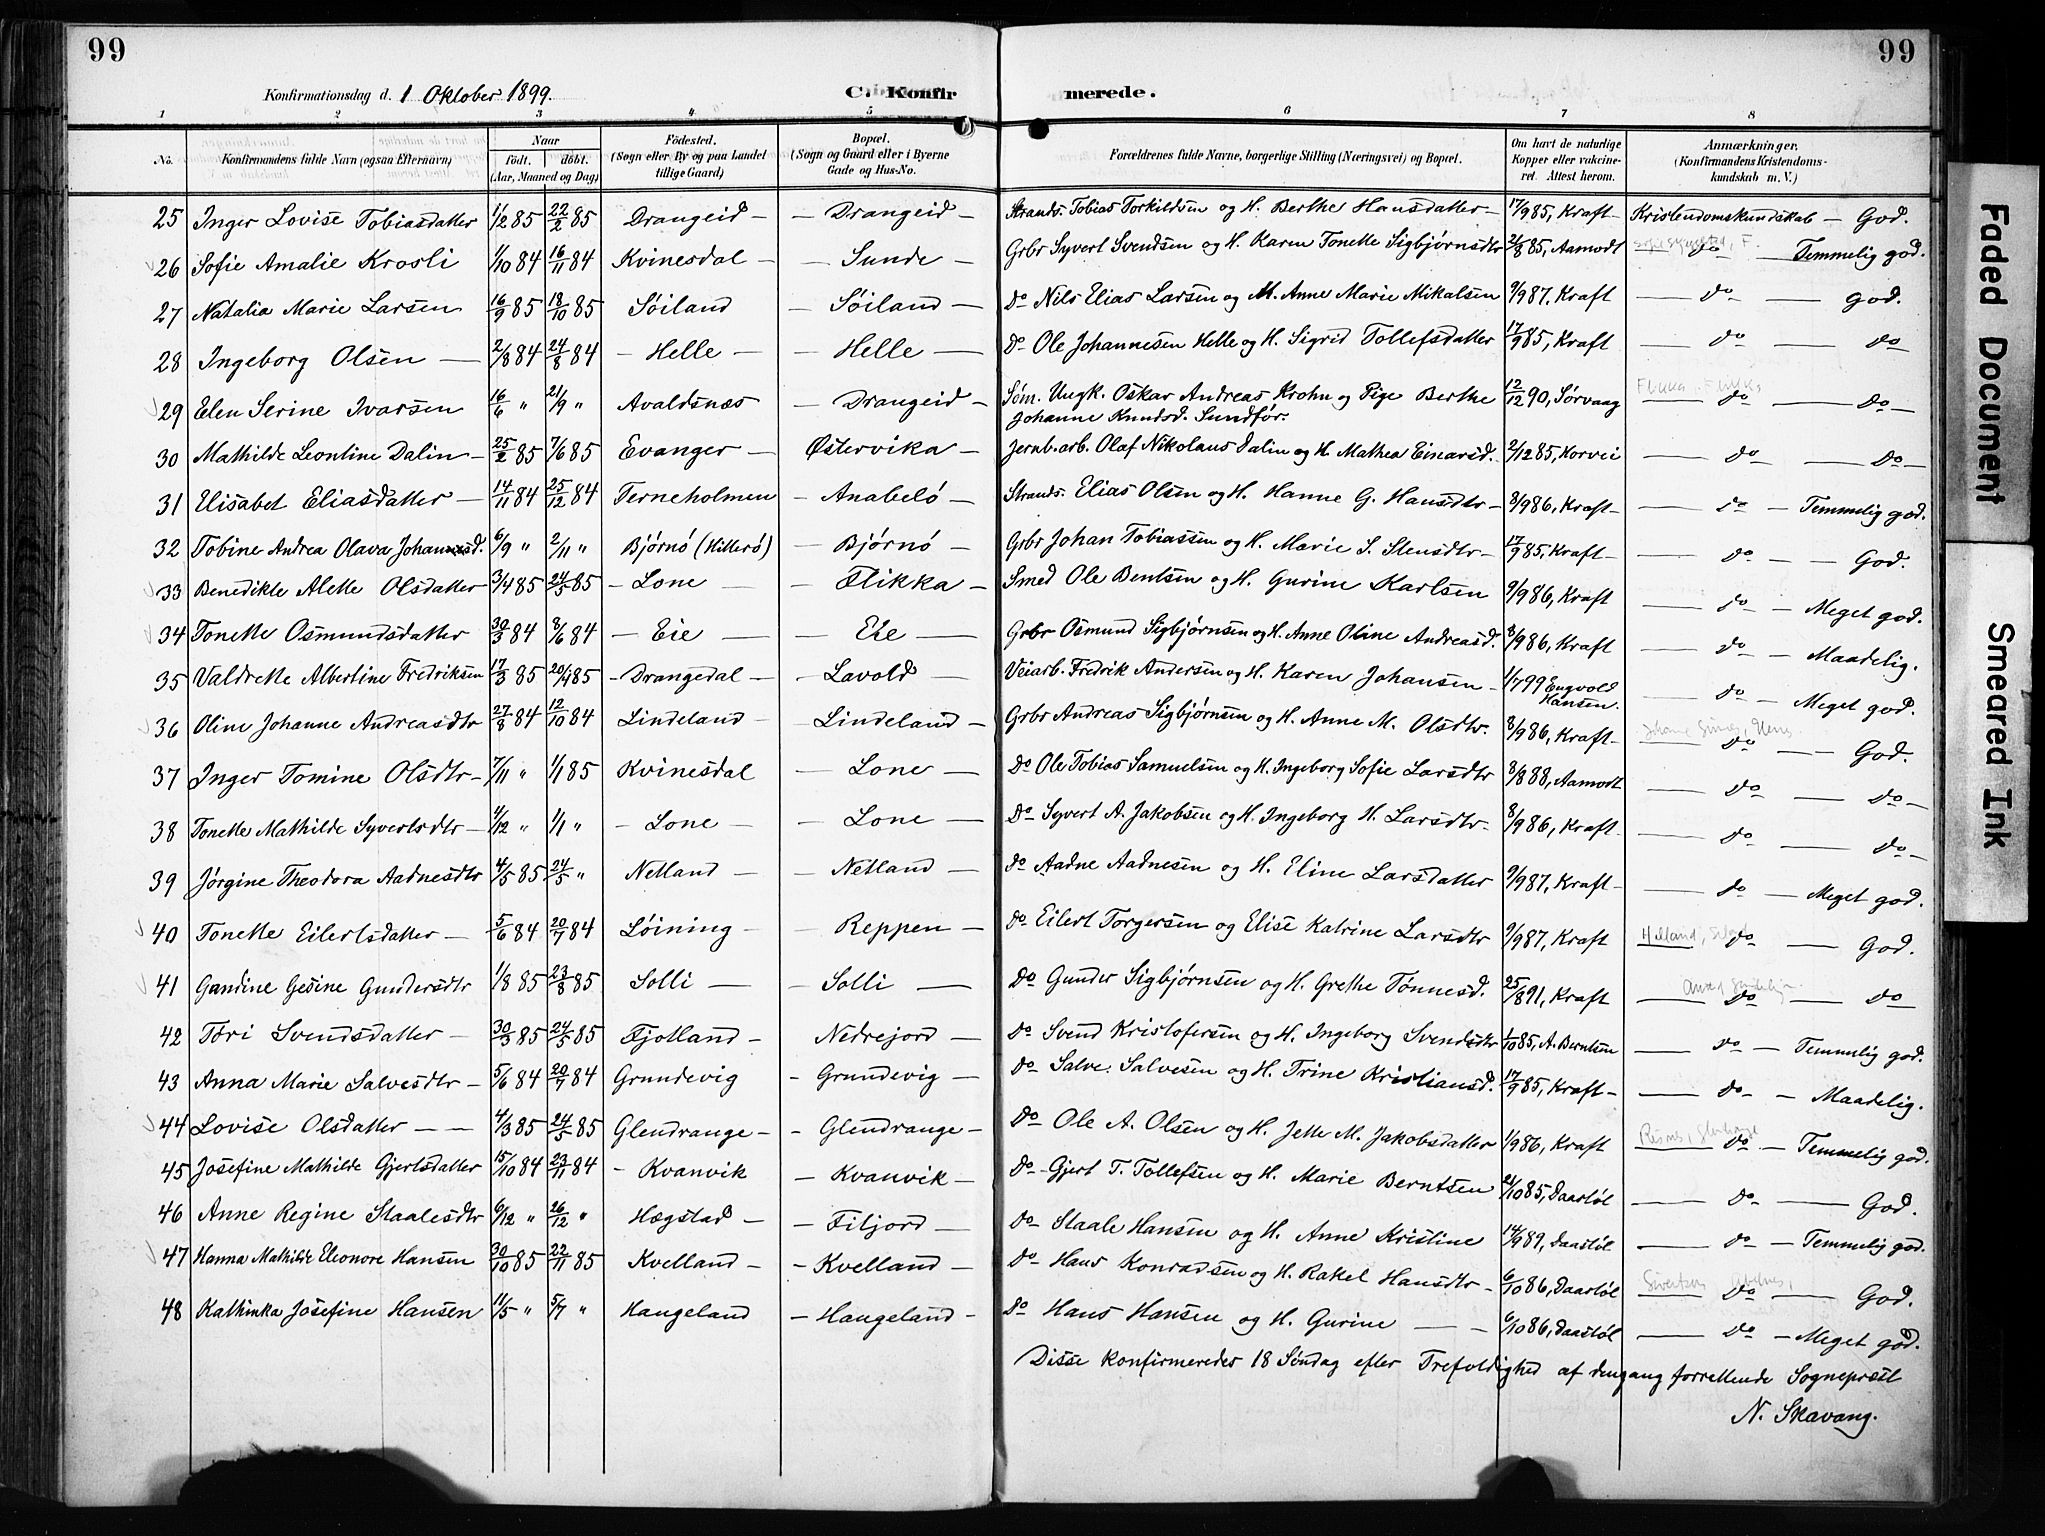 99
99
Konfirmationsdag d. 1 Oktober 1899.
C. Konfirmerede.
1 2 3 4 5 6 7 8
No. Konfirmandens fulde Navn (ogsaa Efternavn) Naar født. døbt. (Aar, Maaned og Dag) Födested. (Sogn eller By og paa Landet tillige Gaard) Bopæl. (Sogn og Gaard eller i Byerne Gade og Hus-No. Forældrenes fulde Navne, borgerlige Stilling (Næringsvei) og Bopæl. Om havt de naturlige Kopper eller vakcineret. Attest herom. Anmærkninger. (Konfirmandens Kristendomskundskab m. V.)
25 Inger Lovise Tobiasdatter 1/2 85 22/2 85 Drangeid — — Drangeid — Strands. Tobias Torkildsen og H. Berthe Hansdatter — 17/9 85, Kraft — Kristendomskundskab — God.
26 Sofie Amalie Krosli 1/10 84 16/11 84 Kvinesdal — — Sunde — Grbr Syvert Svendsen og H. Karen Tonette Sigbjørnsdtr 2/8 85, Aamodt — do — Temmelig god.
27 Natalia Marie Larsen 16/9 85 18/10 85 Søiland — Søiland — Do Nils Elias Larsen og H. Anne Marie Mikalsen 9/9 87, Kraft — do — god.
28 Ingeborg Olsen — 2/8 84 24/8 84 — Helle — — Helle — Do Ole Johannesen Helle og H. Sigrid Tollefsdatter 17/9 85, Kraft — do — do
29 Elen Serine Ivarsen 16/6 " 21/9 " Avaldsnæs — Drangeid — Søm. Ungk. Oskar Andreas Krohn og Pige Berthe 12/12 90, Sørvaag — do — do —
Johanne Knudsd. Sundfør.
30 Mathilde Leontine Dalin — 25/2 85 7/6 85 Evanger — Østervika — Jernb.arb. Olaf Nikolaus Dalin og H. Mathea Einarsd. 2/12 85, Korvei — do — do —
31 Elisabet Eliasdatter — 14/11 84 25/12 84 Terneholmen — Anabelö — Strands. Elias Olsen og H. Hanne G. Hansdtr — 8/9 86, Kraft — do — Temmelig god.
32 Tobine Andrea Olava Johannesd. 6/9 " 2/11 " Bjørnö (Hitterö) — Bjørnö — Grbr Johan Tobiassen og H. Marie S. Stensdtr — 17/9 85, Kraft — — do — God.
33 Benedikte Alette Olsdatter 3/4 85 24/5 85 — Lone — — Flikka — Smed Ole Bentsen og H. Gurine Karlsen 9/9 86, Kraft — do — Meget god.
34 Tonette Osmundsdatter 30/3 84 8/6 84 — Eie — — Eie — Grbr Osmund Sigbjørnsen og H. Anne Oline Andreasd. 8/9 86, Kraft — do — Maadelig.
35 Valdrette Albertine Fredriksen 17/3 85 20/4 85 — Drangedal — — Lavold — Veiarb. Fredrik Andersen og H. Karen Johansen — 1/7 99 Engvold Hansen. — do — Meget god.
36 Oline Johanne Andreasdtr 27/8 84 12/10 84 Lindeland — — Lindeland — Grbr Andreas Sigbjørnsen og H. Anne M. Olsdtr. 8/9 86, Kraft — — do — God.
37 Inger Tomine Olsdtr — 7/11 " 1/1 85 Kvinesdal — Lone — Do Ole Tobias Samuelsen og H. Ingeborg Sofie Larsdtr 8/8 88, Aamodt — do — do —
38 Tonette Mathilde Syvertsdtr — 4/12 " 1/1 " — Lone — — Lone — Do Syvert A. Jakobsen og H. Ingeborg H. Larsdtr. 8/9 86, Kraft — — do — do —
39 Jørgine Theodora Aadnesdtr 4/5 85 24/5 " Netland — — Netland — Do Aadne Aadnesen og H. Eline Larsdatter 9/9 87, Kraft — — do — Meget god.
40 Tonette Eilertsdatter — 5/6 84 20/7 84 Løining — — Reppen — Do Eilert Torgersen og Elise Katrine Larsdtr 9/9 87, Kraft — do — God.
41 Gandine Gesine Gundersdtr 1/8 85 23/8 85 Solli — — Solli — Do Gunder Sigbjørnsen og H. Grethe Tønnesd. 25/8 91, Kraft — do — do
42 Tøri Svendsdatter — 30/3 85 24/5 85 Fjotland — — Nedrejord — Do Svend Kristofersen og H. Ingeborg Svendsdtr 1/10 85, A. Berntsen — do — Temmelig god.
43 Anna Marie Salvesdtr — 5/6 84 20/7 84 Grundevig — Grundevig — Do Salve Salvesen og H. Trine Kristiansd. 17/9 85, Kraft — — do — Maadelig.
44 Lovise Olsdatter — — 4/3 85 24/5 85 Glendrange — — Glendrange — Do Ole A. Olsen og H. Jette M. Jakobsdatter 1/9 86, Kraft — do — Temmelig god.
45 Josefine Mathilde Gjertsdatter 15/10 84 23/11 84 — Kvanvik — Kvanvik — Do Gjert T. Tollefsen og H. Marie Berntsen 21/10 85, Daastøl — do — God.
46 Anne Regine Staalesdtr 6/12 " 26/12 " Hægstad — — Fitjord — Do Staale Hansen og H. Anne Kristine 14/9 89, Daastøl — do — Temmelig god.
47 Hanna Mathilde Eleonore Hansen 30/10 85 22/11 85 Kvelland — — Kvelland — Do Hans Konradsen og H. Rakel Hansdtr — 6/10 86, Daastøl — do — God.
48 Kathinka Josefine Hansen 11/5 " 5/7 " Haugeland — Haugeland — Do Hans Hansen og H. Gurine — — 6/10 86, Daastøl — do — Meget god.
Disse konfirmeredes 18 Søndag efter Trefoldighed af dengang forrettende Sogneprest
N. Skavang.
Faded Document
Smeared Ink